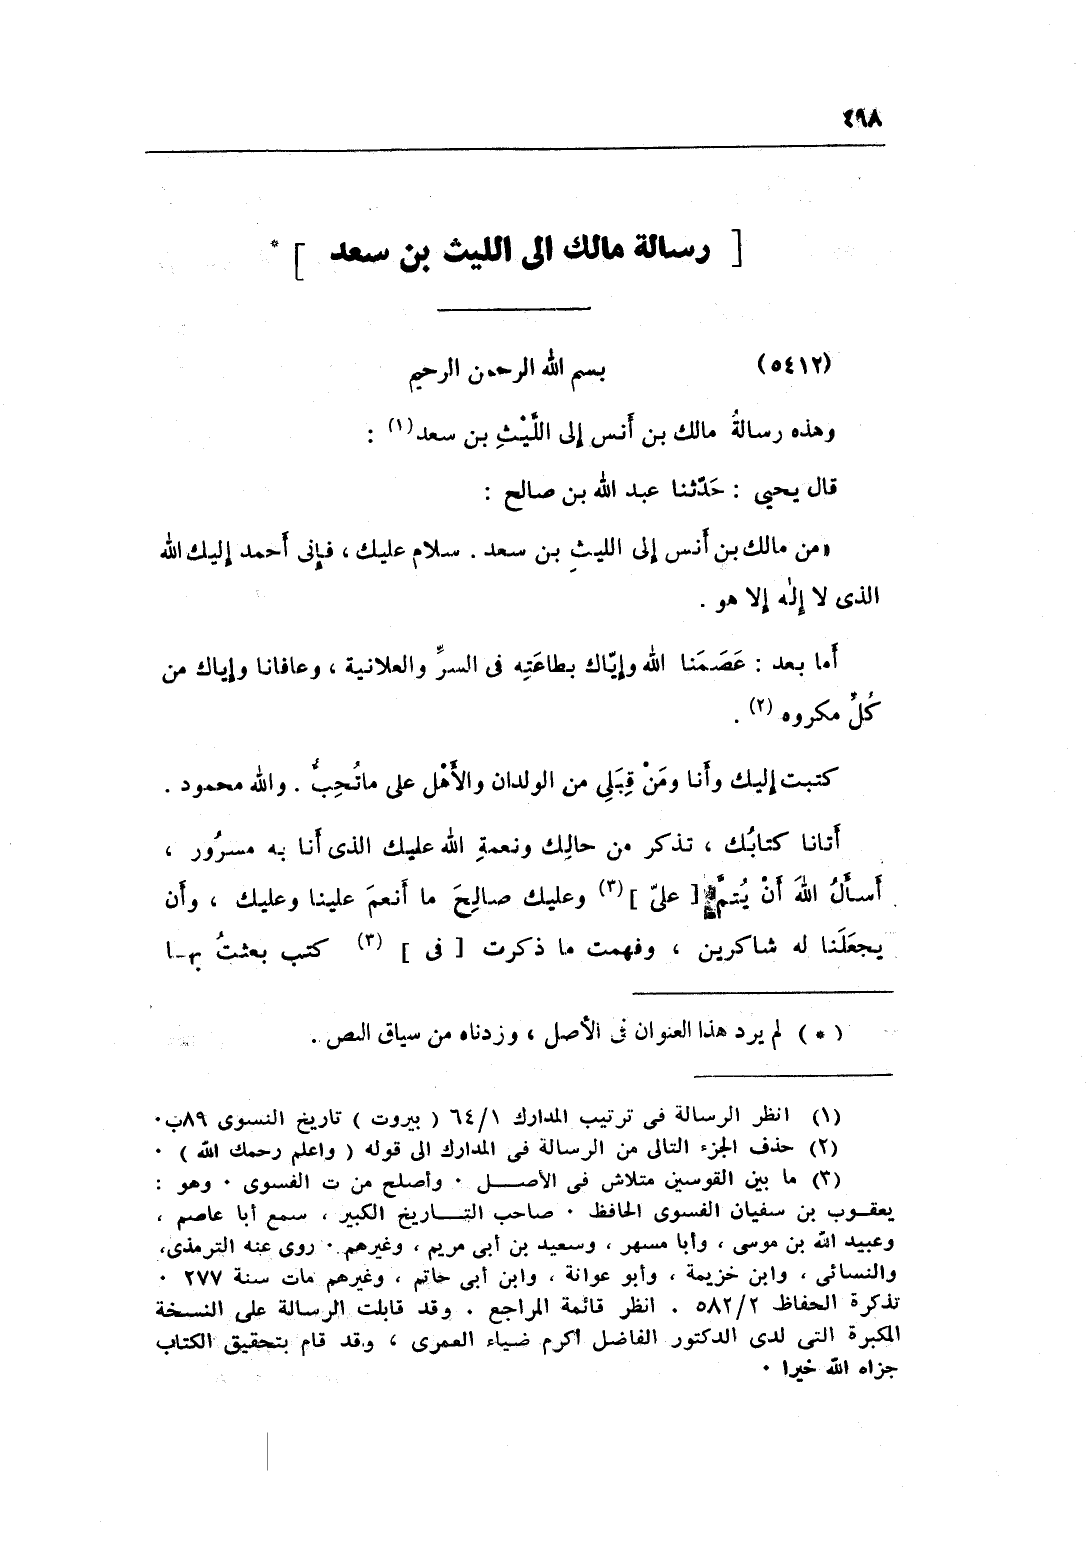 ٤٩٨
[ رسالة مالك الى الليث بن سعد ] *
(٥٤١٢) بسم الله الرحمن الرحيم
وهذه رسالةُ مالك بن أَنس إِلى اللَّيْثِ بن سعد(١) :
قال يحيي : حَدّثنا عبد الله بن صالح :
«من مالك بن أَنس إِلى الليثِ بن سعد . سلام عليك ، فإِنى أَحمد إِليك الله
الذى لا إِلٰه إِلا هو .
أَما بعد : عَصَمَنا الله وإِيّاك بطاعَتِه فى السرِّ والعلانية ، وعافانا وإِياك من
كُلِّ مكروه (٢) .
كتبت إِليك وأَنا ومَنْ قِبَلِي من الولدان والأَهْل على ماتُحِبُّ . والله محمود .
أَتانا كتابُك ، تذكر من حالِك ونعمةِ الله عليك الذى أَنا به مسرُور ،
أَسأَلُ اللهَ أَنْ يُتمَّ [ علىّ ] (٣) وعليك صالِحَ ما أَنعمَ علينا وعليك ، وأَن
يجعَلَنا له شاكرين ، وفهمت ما ذكرت [ فى ] (٣) كتب بعثتُ بهـا
( * ) لم يرد هذا العنوان فى الأصل ، وزدناه من سياق النص .
(١) انظر الرسالة فى ترتيب المدارك ٦٤/١ ( بيروت ) تاريخ النسوى ٨٩ب٠
(٢) حذف الجزء التالى من الرسالة فى المدارك الى قوله ( واعلم رحمك الله ) ٠
(٣) ما بين القوسين متلاش فى الأصـــل ٠ وأصلح من ت الفسوى ٠ وهو :
يعقـوب بن سفيان الفسوى الحافظ ٠ صاحب التـــاريخ الكبير ، سمع أبا عاصم ،
وعبيد الله بن موسى ، وأبا مسهر ، وسعيد بن أبى مريم ، وغيرهم ٠ روى عنه الترمذى،
والنسائى ، وابن خزيمة ، وأبو عوانة ، وابن أبى حاتم ، وغيرهم مات سنة ٢٧٧ ٠
تذكرة الحفاظ ٥٨٢/٢ . انظر قائمة المراجع . وقد قابلت الرسالة على النسخة
المكبرة التى لدى الدكتور الفاضل أكرم ضياء العمرى ، وقد قام بتحقيق الكتاب
جزاه الله خيرا ٠